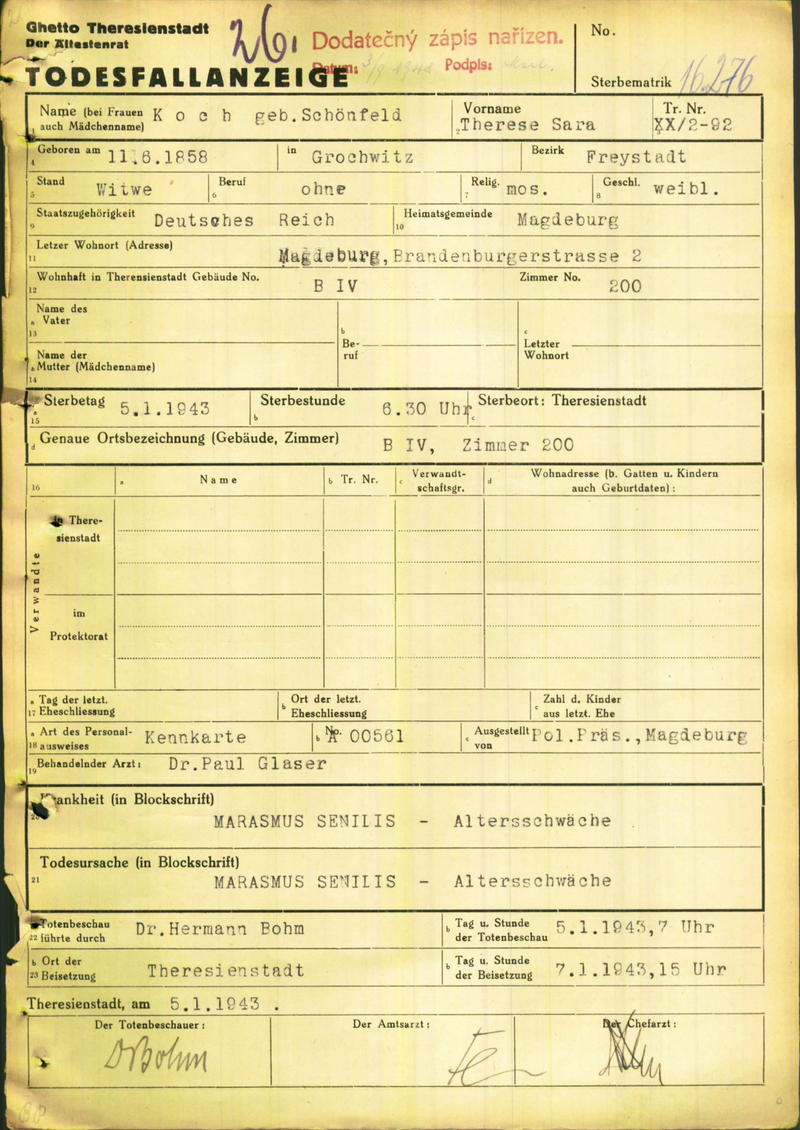 Ghetto Theresienstadt
Der Ältestenrat
Dodatečný zápis nařízen.
Datum: Podpis:
No.
TODESFALLANZEIGE
Sterbematrik 16.276
Name (bei Frauen auch Mädchenname) Koch geb.Schönfeld
Vorname Therese Sara
Tr. Nr. XX/2-92
4 Geboren am 11.6.1858 in Grochwitz Bezirk Freystadt
5 Stand Witwe 6 Beruf ohne 7 Relig. mos. 8 Geschl. weibl.
9 Staatszugehörigkeit Deutsches Reich 10 Heimatsgemeinde Magdeburg
11 Letzer Wohnort (Adresse) Magdeburg,Brandenburgerstrasse 2
12 Wohnhaft in Therensienstadt Gebäude No. B IV Zimmer No. 200
13 a Name des Vater
14 a Name der Mutter (Mädchenname)
b Beruf
c Letzter Wohnort
15 a Sterbetag 5.1.1943 b Sterbestunde 6.30 Uhr c Sterbeort: Theresienstadt
d Genaue Ortsbezeichnung (Gebäude, Zimmer) B IV, Zimmer 200
16 a Name b Tr. Nr. c Verwandtschaftsgr. d Wohnadresse (b. Gatten u. Kindern auch Geburtdaten) :
Verwandte
Theresienstadt
im Protektorat
17 a Tag der letzt. Eheschliessung b Ort der letzt. Eheschliessung c Zahl d. Kinder aus letzt. Ehe
18 a Art des Personalausweises Kennkarte b Nr. A 00561 c Ausgestellt von Pol.Präs.,Magdeburg
19 Behandelnder Arzt: Dr.Paul Glaser
20 Krankheit (in Blockschrift)
MARASMUS SENILIS - Altersschwäche
21 Todesursache (in Blockschrift)
MARASMUS SENILIS - Altersschwäche
22 Totenbeschau führte durch Dr.Hermann Bohm b Tag u. Stunde der Totenbeschau 5.1.1943,7 Uhr
23 b Ort der Beisetzung Theresienstadt b Tag u. Stunde der Beisetzung 7.1.1943,15 Uhr
Theresienstadt, am 5.1.1943 .
Der Totenbeschauer : Der Amtsarzt : Der Chefarzt :
DrBohm